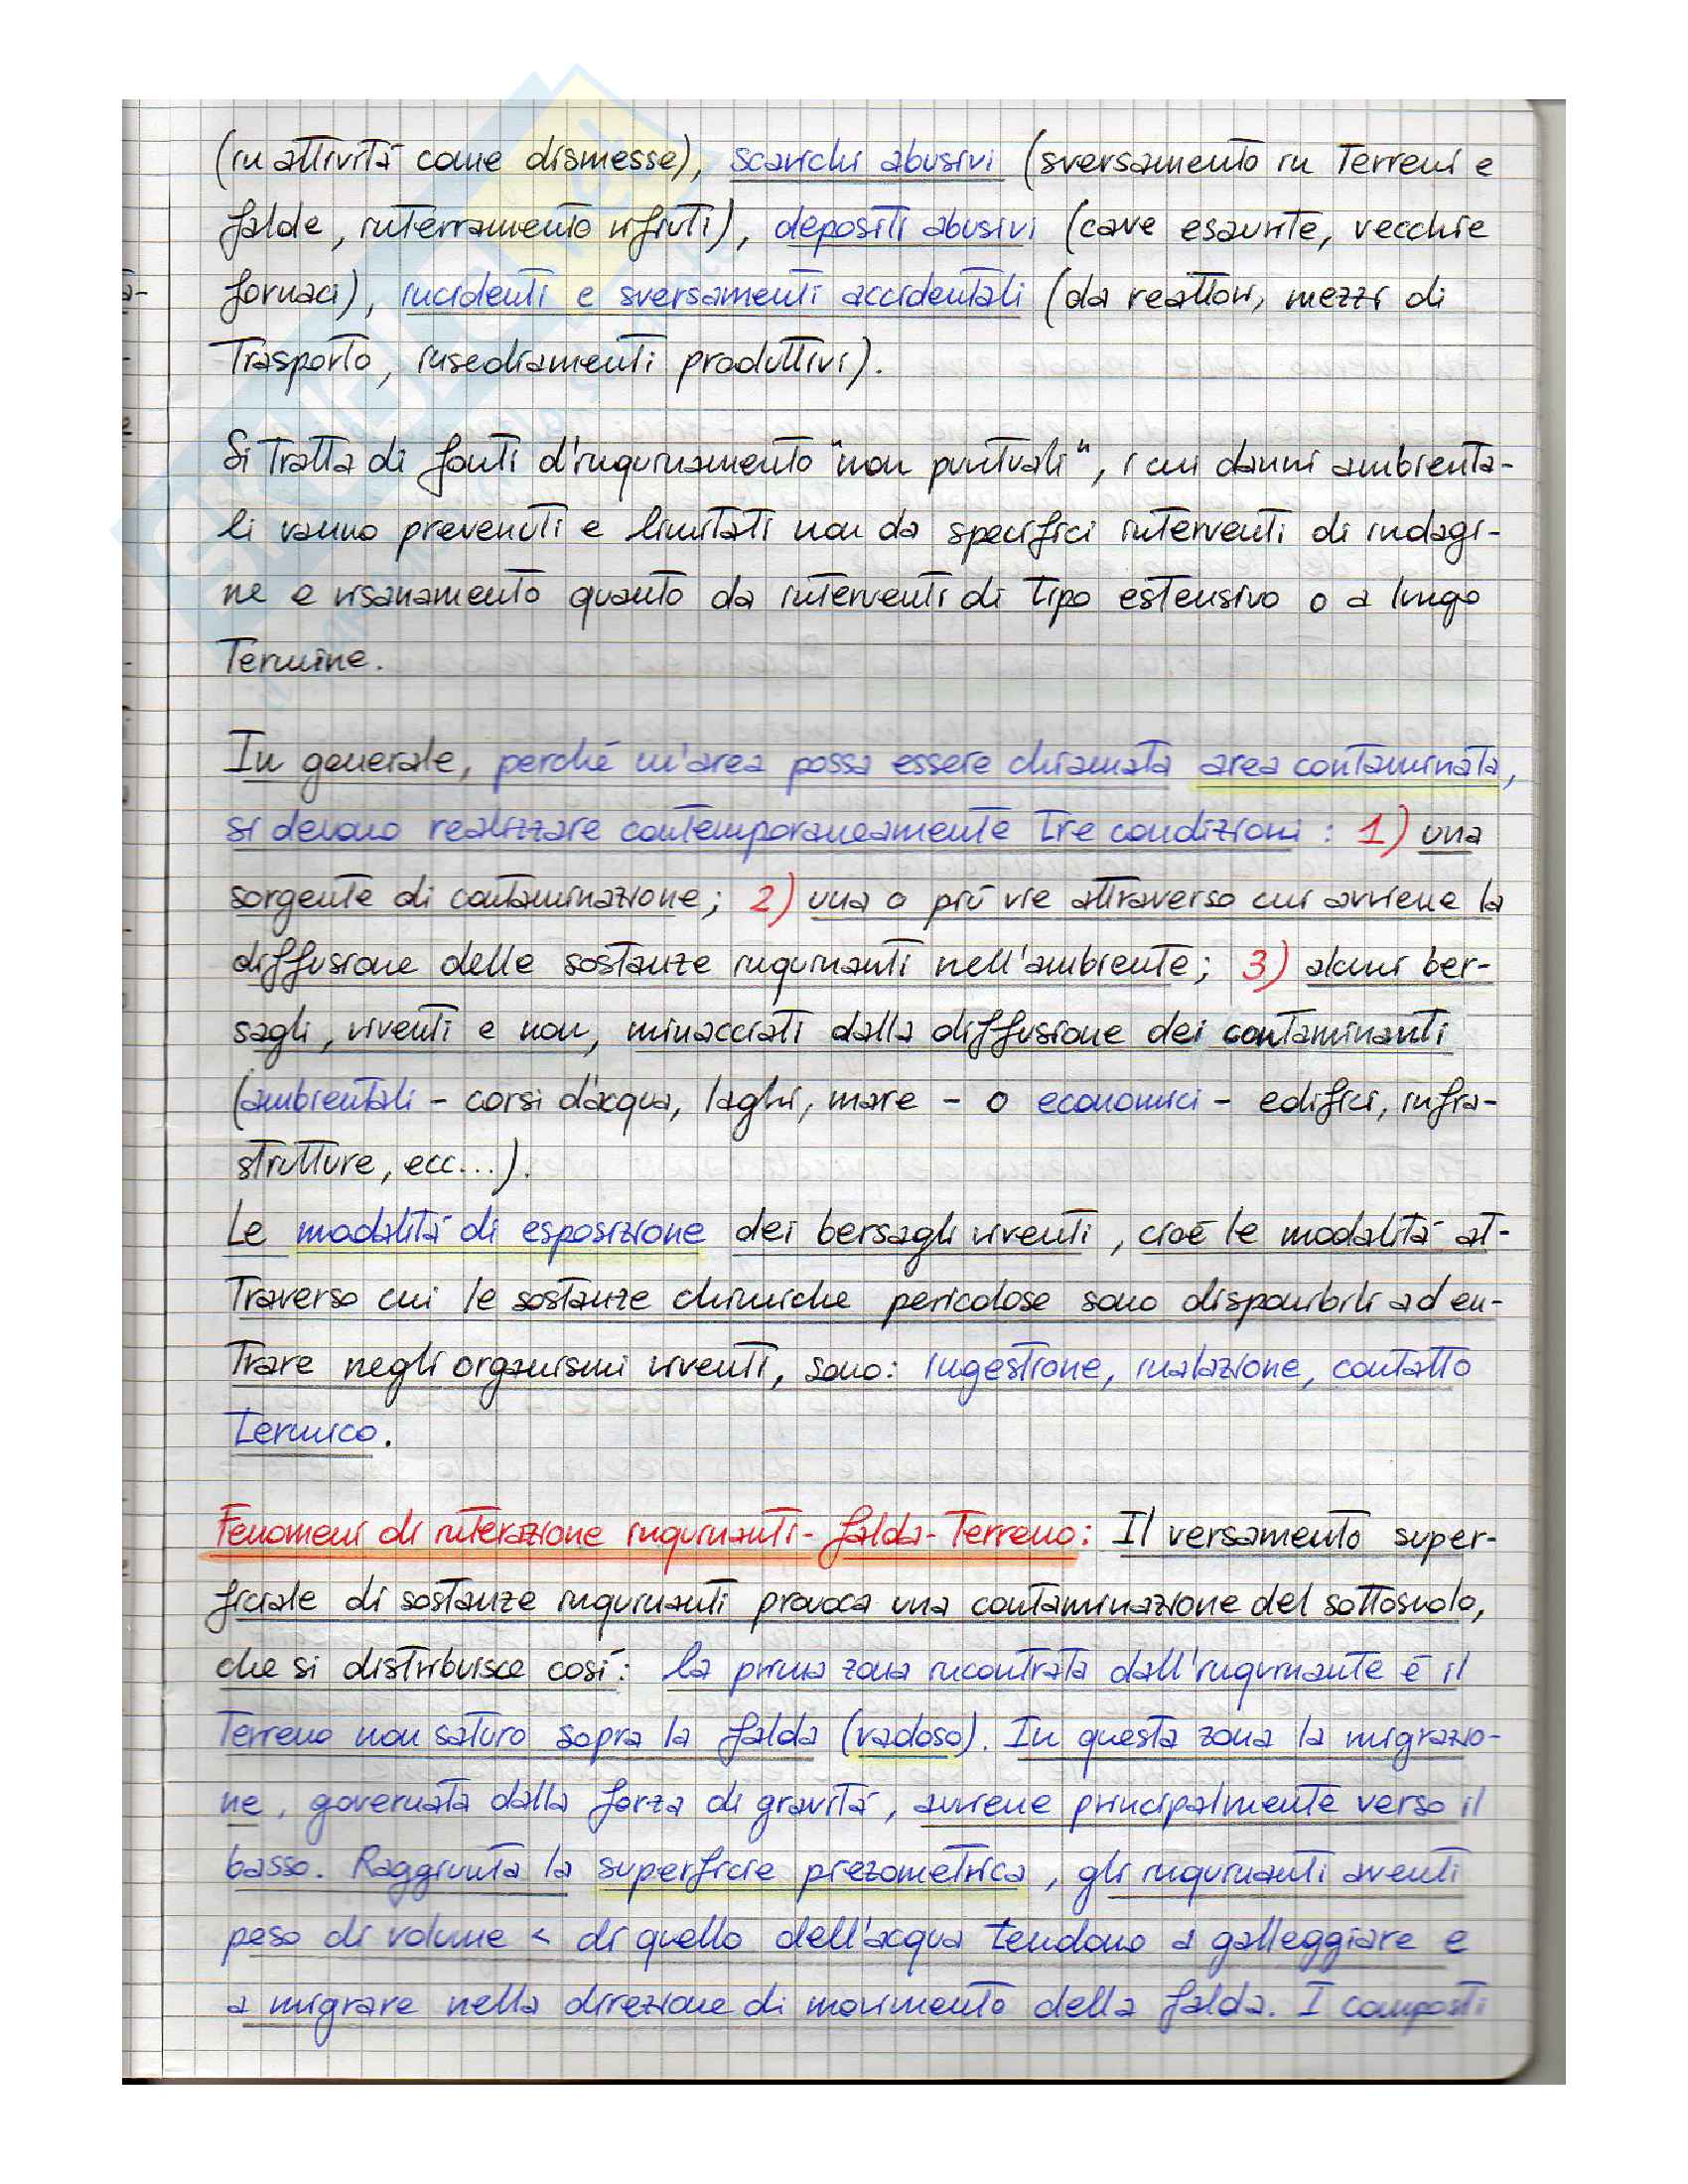 (in attività come dismesse), scarichi abusivi (sversamento in terreni e
falde, interramento rifiuti), depositi abusivi (cave esaurite, vecchie
fornaci), incidenti e sversamenti accidentali (da reattori, mezzi di
trasporto, insediamenti produttivi).
Si tratta di fonti d'inquinamento "non puntuali", i cui danni ambienta-
li vanno prevenuti e limitati non da specifici interventi di indagi-
ne e risanamento quanto da interventi di tipo estensivo o a lungo
termine.
In generale, perché un'area possa essere chiamata area contaminata,
si devono realizzare contemporaneamente tre condizioni: 1) una
sorgente di contaminazione; 2) una o più vie attraverso cui avviene la
diffusione delle sostanze inquinanti nell'ambiente; 3) alcuni ber-
sagli, viventi e non, minacciati dalla diffusione dei contaminanti
(ambientali - corsi d'acqua, laghi, mare - o economici - edifici, infra-
strutture, ecc...).
Le modalità di esposizione dei bersagli viventi, cioè le modalità at-
traverso cui le sostanze chimiche pericolose sono disponibili ad en-
trare negli organismi viventi, sono: ingestione, inalazione, contatto
termico.
Fenomeni di interazione inquinanti-falda-terreno: Il versamento super-
ficiale di sostanze inquinanti provoca una contaminazione del sottosuolo,
che si distribuisce così: la prima zona incontrata dall'inquinante è il
terreno non saturo sopra la falda (vadoso). In questa zona la migrazio-
ne, governata dalla forza di gravità, avviene principalmente verso il
basso. Raggiunta la superficie piezometrica, gli inquinanti aventi
peso di volume < di quello dell'acqua tendono a galleggiare e
a migrare nella direzione di movimento della falda. I composti